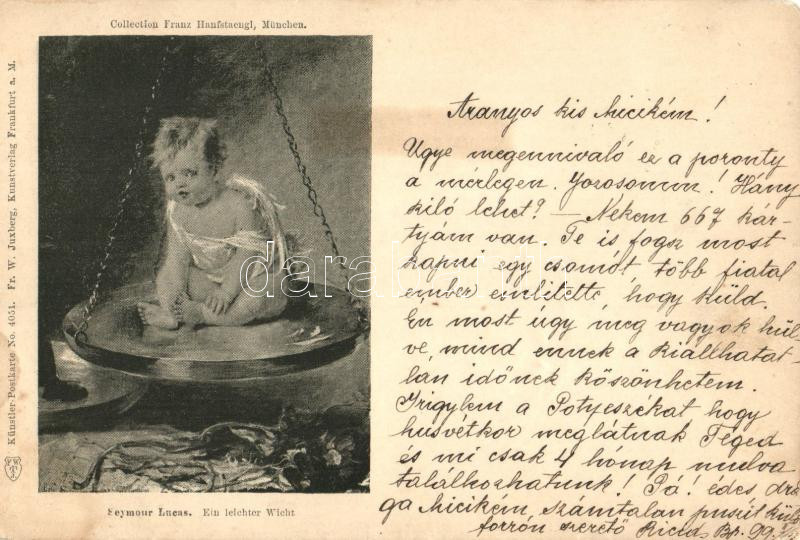 Collection Franz Hanfstaengl, München.
Künstler-Postkarte No. 4051. Fr. W. Juxberg, Kunstverlag Frankfurt a. M.
Seymour Lucas. Ein leichter Wicht
darabanth.com
Aranyos kis Micikém!
Ugye megennivaló ez a poronty
a mérlegen. Hány
kiló lehet? — Nekem 667 kár-
tyám van. Te is fogsz most
kapni egy csomót, több fiatal
ember említette, hogy küld.
Én most úgy meg vagyok hül-
ve, mind ennek a kiállhatat-
lan időnek köszönhetem.
Irigylem a Potyeszékat hogy
husvétkor meglátnak Téged
és mi csak 4 hónap mulva
találkozhatunk! Pá! édes drá-
ga Micikém, számtalan puszit küld
forrón szerető Bp. 99